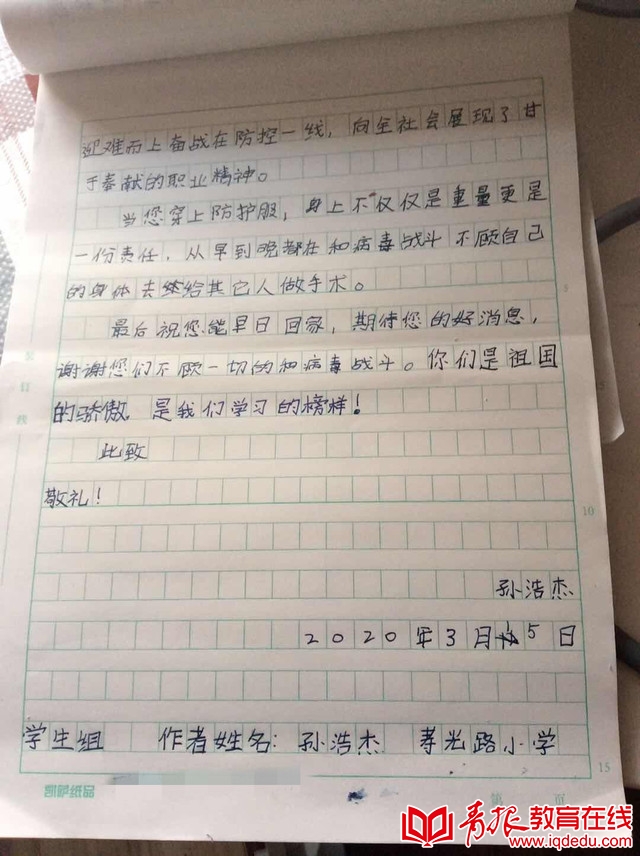 迎难而上奋战在防控一线，向全社会展现了甘
于奉献的职业精神。
当您穿上防护服，身上不仅仅是重量更是
一份责任，从早到晚都在和病毒战斗不顾自己
的身体去给其它人做手术。
最后祝您能早日回家，期待您的好消息，
谢谢您们不顾一切的和病毒战斗。你们是祖国
的骄傲，是我们学习的榜样！
此致
敬礼！
孙浩杰
2020年3月5日
学生组 作者姓名：孙浩杰 孝光路小学
凯萨纸品
第 页
5
10
15
青报教育在线
www.iqdedu.com